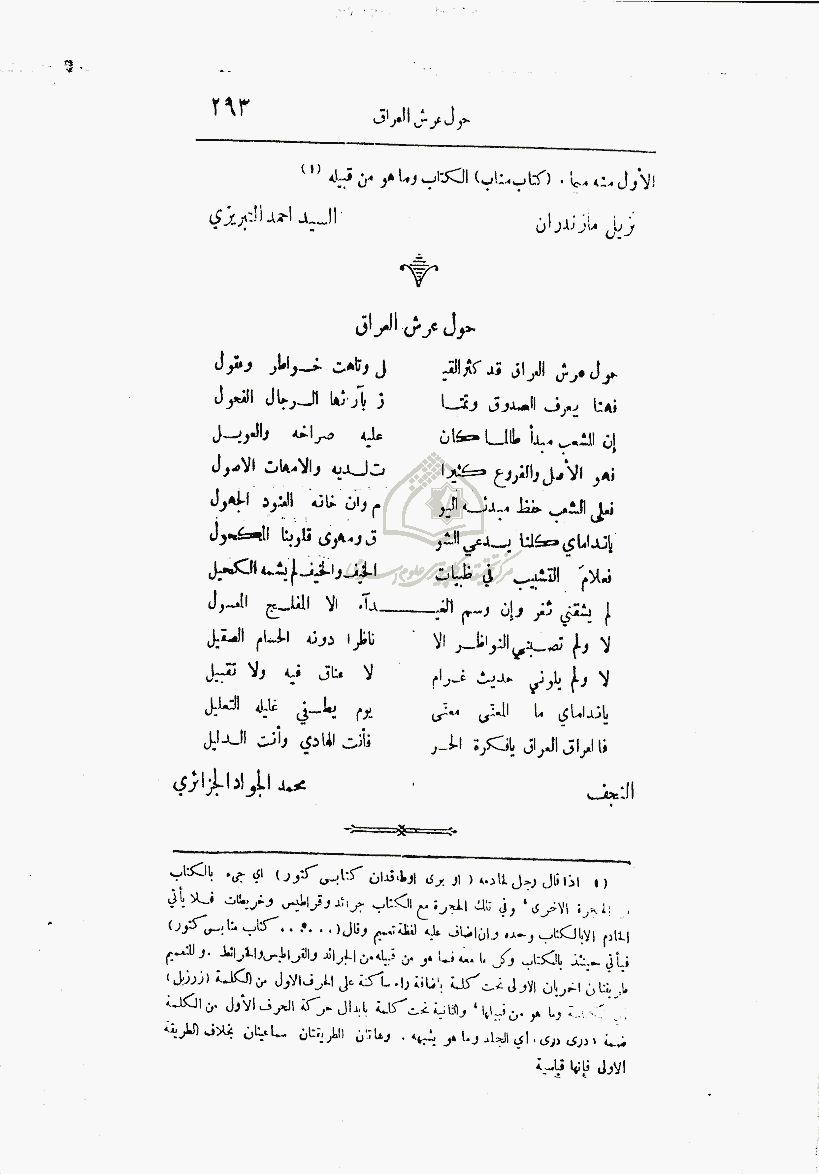 حول عرش العراق ٢٩٣
الأول منه ميما . (كتاب متاب) الكتاب وما هو من قبيله (١)
نزيل مازندران السيد احمد التبريزي
حول عرش العراق
حول عرش العراق قد كثر القيـ ـل وتاهت خواطر وعقول
فهنا يعرف الصدوق وتمتـا ز بآرائها الرجال الفحول
إن للشعب مبدأ طالما كان عليه صراخه والعويل
فهو الأصل والفروع كثيرا ت لديه والامهات الاصول
فعلى الشعب حفظ مبدئه اليو م وان خانه العنود الجهول
ياندماي كلنا يدعي الشو ق ومهوى قلوبنا المكحول
فعلامَ التشبيب في ظبيات الخيف والخيف لم يشمه الكحيل
لم يشقني ثغر وإن وسم الغيـ ـدآء الا المفلج المعسول
لا ولم تصبني النواظر الا ناظرا دونه الحسام الصقيل
لا ولم يلوني حديث غرام لا عناق فيه ولا تقبيل
ياندماي ما المعنى معنّى يوم يطفي غليله التعليل
فالعراق العراق يافكرة الحـر فأنت الهادي وأنت الدليل
النجف محمد الجواد الجزائري
(١ اذا قال رجل لخادمه ( او بري اوطاقدان كتابي كتور ) اي جيء بالكتاب
من الحجرة الاخرى ، وفي تلك الحجرة مع الكتاب جرائد وقراطيس وخريطات فلا يأتي
الخادم الا بالكتاب وحده وان اضاف عليه لفظة تعميم وقال ( ..... كتاب متابي كتور )
فيأتي حينئذ بالكتاب وكل ما معه مما هو من قبيله من الجرائد والقراطيس والخرائط . وللتعميم
طريقتان اخريان الاولى نحت كلمة باضافة زاء ساكنة على الحرف الاول من الكلمة (زرزبل)
وما هو من قبيلها ، والثانية نحت كلمة بابدال حركة الحرف الأول من الكلمة
ضمة ، دري دري ، أي الجلد وما هو يشبهه . وهاتان الطريقتان سماعيتان بخلاف الطريقة
الاولى فإنها قياسية